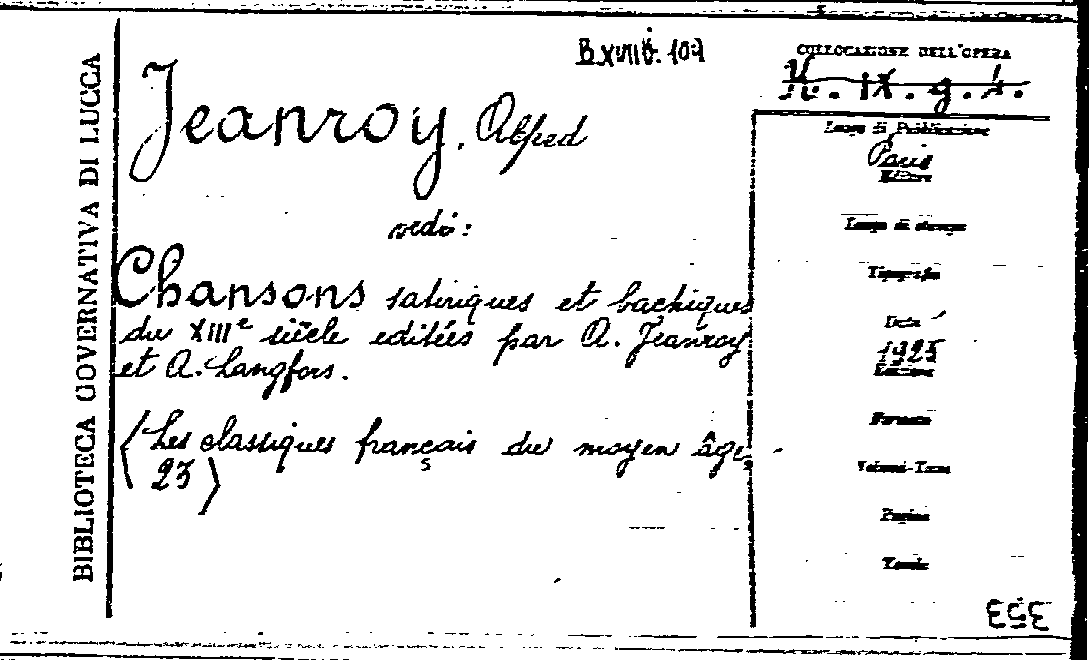 BIBLIOTECA GOVERNATIVA DI LUCCA
B.XVIII. 107
COLLOCAZIONE DELL'OPERA
IX. g. 4.
Jeanroy, Alfred
vedi:
Chansons satiriques et bachiques
du XIIIe siècle editées par A. Jeanroy
et A. Langfors.
(Les classiques français du moyen âge,
23)
Luogo di Pubblicazione
Paris
Editore
Luogo di stampa
Tipografia
Data
1925
Edizione
Formato
Volumi-Tomo
Pagine
Tavole
353